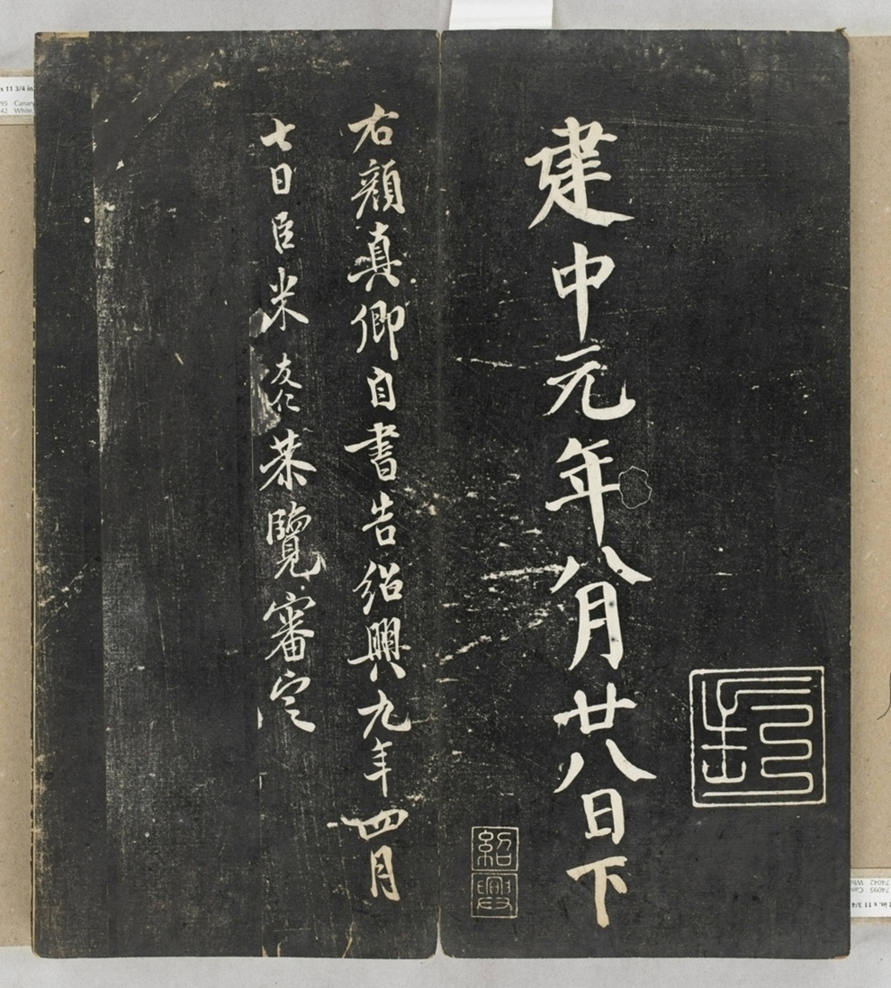 建中元年八月廿八日下
紹興
右顏真卿自書告紹興九年四月
七日臣米友仁恭覽審定